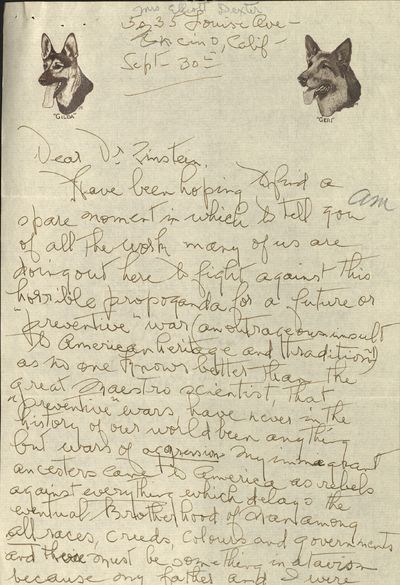 Mrs Elliott Dexter
5235 Louise Ave -
Encino, Calif -
Sept - 30th
"GILDA"
"GERI"
Dear Dr Einstein,
Have been hoping to find a
am
spare moment in which to tell you
of all the work many of us are
doing out here to fight against this
horrible propoganda for a future or
"preventive" war (an outrageous insult
to American heritage and tradition)
as no one knows better than the
great Maestro scientist, that
"preventive" wars, have never in the
history of our world been anything
but wars of aggression My immegrant
ancestors came to America as rebels
against everything which delays the
eventual Brotherhood of Man among
all races, creeds, colours and governments
and there must be something in atavism
because my father and I were